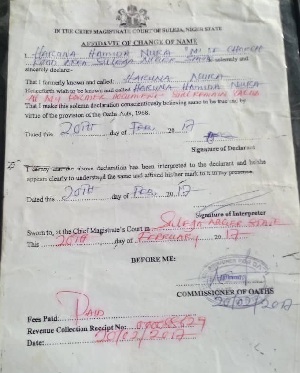 IN THE CHIEF MAGISTRATE COURT OF SULEJA, NIGER STATE
AFFIDAVIT OF CHANGE OF NAME
I, HARUNA HAMIDA NUKA CHURCH
ROAD AREA SULEJA NIGER STATE solemnly and
sincerely declare:-
That I formerly known called: HARUNA NUKA
Henceforth wish to be known and called HARUNA HAMIDA NUKA
ALL MY EARLIER DOCUMENTS
That I make this solemn declaration conscientiously believing same to be true on, by
Virtue of the provision of the Oaths Act, 1968.
Dated this 20TH day of FEB. 2017
Signature of Declarant
above declaration has been interpreted to the declarant and he/she
appears clearly to understand the same and affixed his/her mark to it in my presence.
Dated this 20TH day of FEB. 2017
Signature of Interpreter
Sworn to, at the Chief Magistrate's Court in SULEJA NIGER STATE
This 20TH day of FEBRUARY 2017
BEFORE ME:
COMMISSIONER OF OATHS
20/02/2017
Fees Paid: PAID
Revenue Collection Receipt No:
Date: 20/02/2017